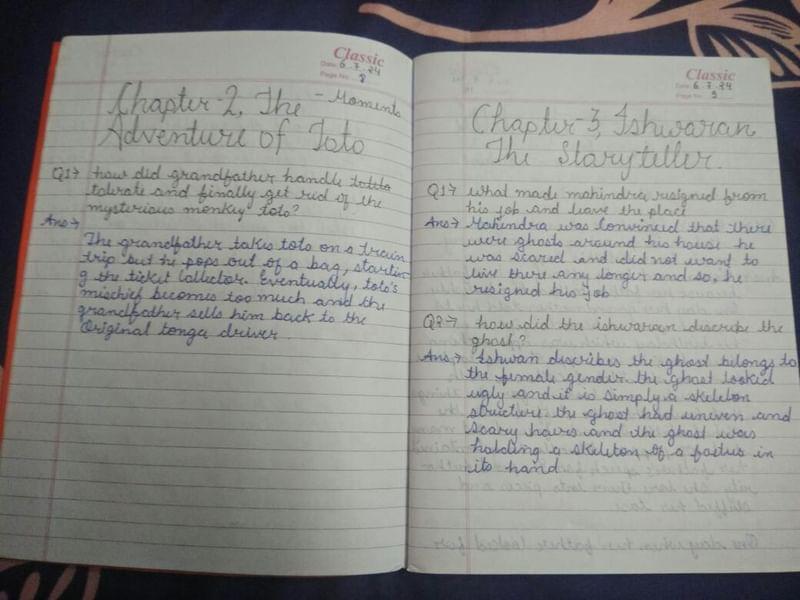 Classic
Date 6.7.24
Page No. 8
Chapter-2, The - Moments
Adventure of Toto
Q1→ how did grandfather handle
tolerate and finally get rid of the
mysterious monkey toto?
Ans→
The grandfather takes toto on a train
trip but he pops out of a bag, startin
g the ticket collector. Eventually, toto's
mischief becomes too much and the
grandfather sells him back to the
Original tonga driver.
Classic
Date 6.7.24
Page No. 9
Chapter-3, Ishwaran
The Storyteller.
Q1→ what made mahindra resigned from
his job and leave the place
Ans→ Mahindra was convinced that there
were ghosts around his house he
was scared and did not want to
live there any longer and so, he
resigned his job
Q2→ how did the ishwaran discribe the
ghost?
Ans→ Ishwan discribes the ghost belongs to
the female gender. the ghost looked
ugly and it is simply a skeleton
structure the ghost had uneven and
scary hairs and the ghost was
holding a skeleton of a foetus in
its hand